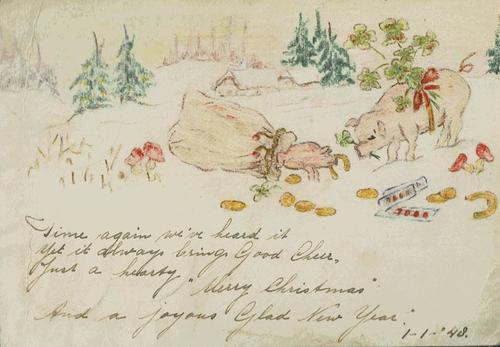 Time again we've heard it
Yet it always brings Good Cheer,
Just a hearty "Merry Christmas"
And a joyous Glad New Year."
1-1-'48.
7000